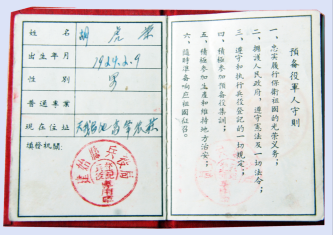 姓名
胡虎荣
出生年月
1929.2.9
性别
男
普通专业
现在住址
填发机关:
预备役军人守则
一、忠实履行保卫祖国的光荣义务;
二、拥护人民政府,遵守宪法及一切法令;
三、遵守和执行兵役登记的一切规定;
四、积极参加预备役集训;
五、积极参加生产和维持地方治安;
六、随时准备响应祖国征召。